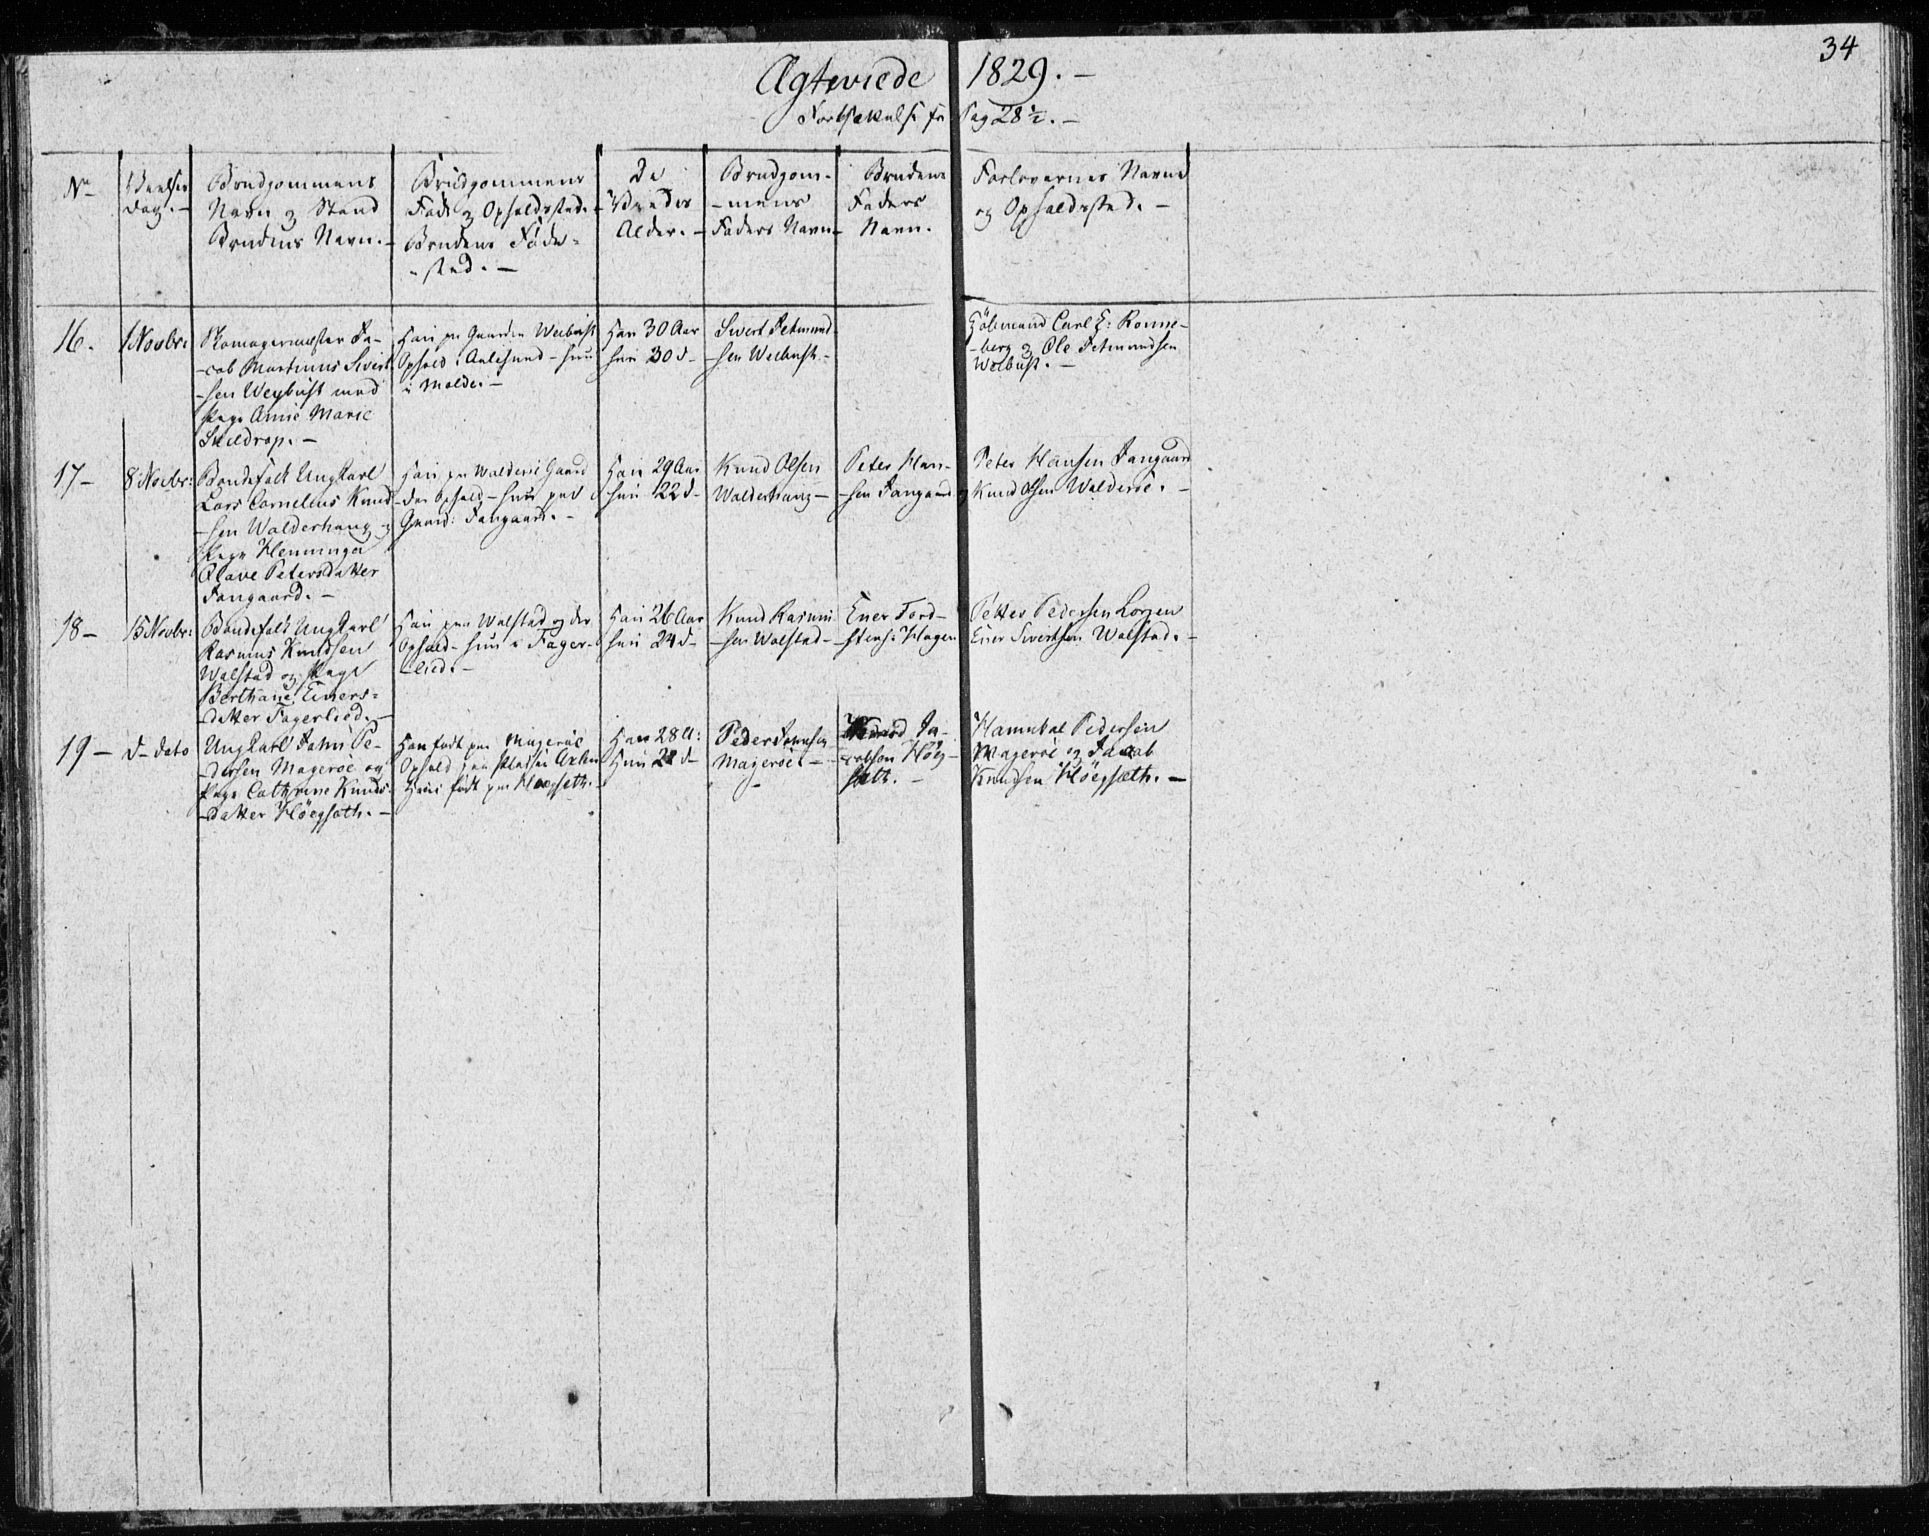 34
Ægteviede 1829. –
Fortsættelse fra Pag 28 1/2. –
No
Vielses
dag. –
Brudgommens
Navn og Stand
Brudens Navn. –
Brudgommens
Føde og Opholdssted. –
Brudens Føde-
sted. –
De
Viedes
Alder. –
Brudgom-
-mens
Faders Navn –
Brudens
Faders
Navn.
Forlovernes Navne
og Opholdssted. –
16.
1 Novbr:
Skomagermester Ja-
-cob Martinus Sivert
-sen Weybust med
Pige Anne Marie
Skeldrop. –
Han paa Gaarden Weebust
Ophold i Aalesund – hun
i Molde. –
Han 30 Aar
hun 30 d –
Sivert Petmund
-sen Weebust. –
Kjøbmand Carl E: Rønne-
-berg og Ole Petmundsen
Webust. –
17 –
8 Novbr:
Bondefolk Ungkarl
Lars Cornelius Knud
-sen Walderhaug og
Pige Henninga
Olave Petersdatter
Fangaard. –
Han paa Walderöe Gaard
der Ophold – hun paa
Gaard: Fangaard. –
Han 29 Aar
hun 22 d –
Knud Olsen
Walderhaug –
Peter Han-
-sen Fangaard
Peter Hansen Fangaard
og Knud Olsen Walderöe. –
18 –
15 Novbr:
Bondefolk Ungkarl
Rasmus Knudsen
Walstad og Pige
Berthane Einers-
-datter Fagerlied. –
Han paa Walstad og der
Ophold – hun i Fager-
-lied. –
Han 26 Aar
hun 24 d –
Knud Rasmu
-sen Walstad –
Ener Tord-
-stens: Hagen
Petter Pedersen Lorgen
Einer Sivertsen Walstad. –
19 –
d – dato
Ungkarl John Pe-
-dersen Mageröe og
Pige Cathrine Knuds
-datter Höegsæth. –
Han født paa Mageröe
Ophold paa Pladsen Axlen
Hun født paa Hoegsæth. –
Han 28 A:
Hun 22 d –
Peder Johnsen
Mageröe –
Knud Ja-
-cobsen Höeg-
sæth. –
Hannibal Pedersen
Mageröe og Jacob
Knudsen Höegsæth. –